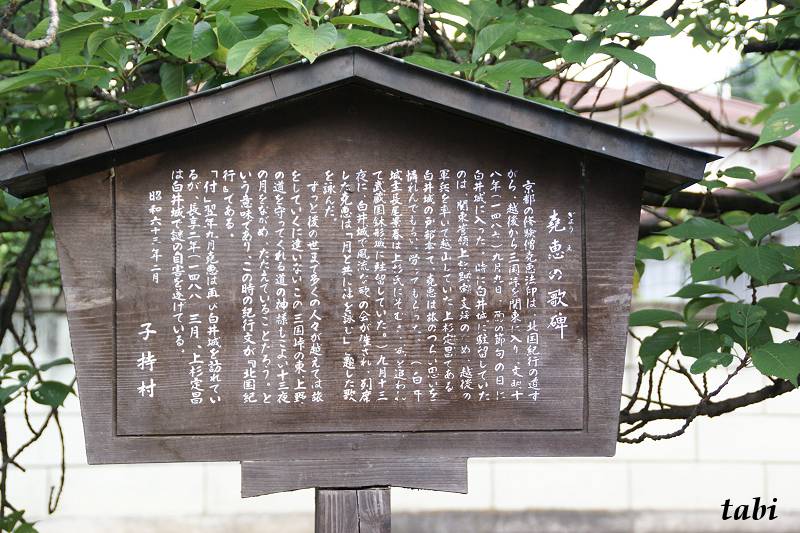 ぎょうえ
尭恵の歌碑
京都の修験僧尭恵法印は、北国紀行の道す
がら、越後から三国峠を関東に入り、文明十
八年(一四八六)九月九日、重陽の節句の日に
白井城に入った。時に白井城に駐留していた
のは、関東管領上杉 支 の 越後の
軍兵を率いて越山していた上杉定昌である
白井城のあ 尭恵は旅のつらい思いを
慰 んでもらい、労ってもらった。(白井
城主長尾景春は上杉氏にそむき 追われ
て武蔵国鉢形城に駐留していた)九月十三
夜に、白井城で風流な歌の会が催され、列席
した尭恵は、「月と共には を詠む」と題した歌
を詠んだ。
ずっと後の世まで多くの人々が越えては旅
をしていくに違いないこの三国峠の東、上野
の道を守ってくれる道の神様も、こよい十三夜
の月をながめ、たたえていることだろう。と
いう意味であり、この時の紀行文が『北国紀
行』である。
「付」翌年九月尭恵は再び白井城を訪れてい
るが、長享二年(一四八八)三月、上杉定昌
は白井城で謎の自害を遂げている。
昭和六十三年二月
子持村
tabi